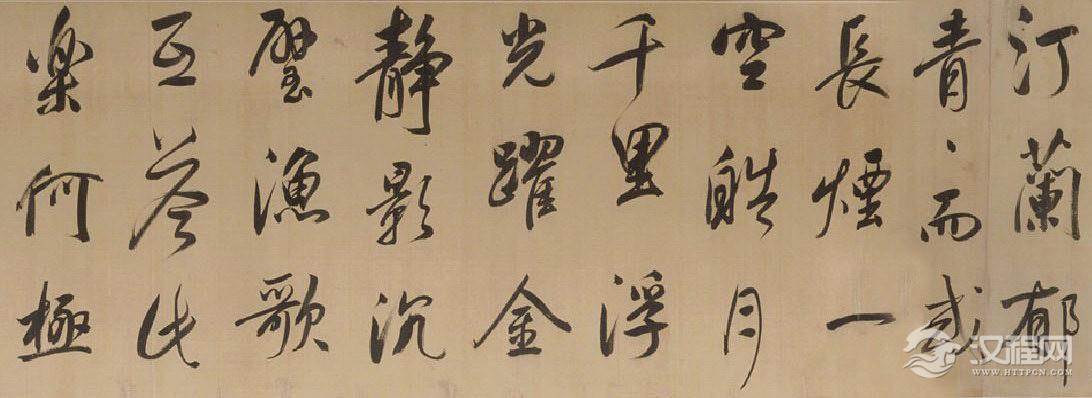 汀蘭郁
青〻而或
長煙一
空皓月
千里浮
光躍金
静影沉
璧漁歌
互答此
楽何極
汉程网
WWW.HTTPCN.COM